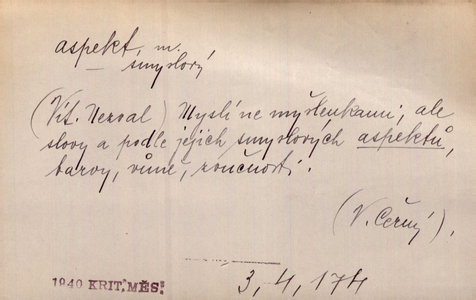 aspekt, m.
smyslový
(Vít. Nezval) Myslí ne myšlenkami, ale
slovy a podle jejich smyslových aspektů,
barvy, vůně, zvučnosti.
(V. Černý),
1940 KRIT. MĚS.
3, 4, 174